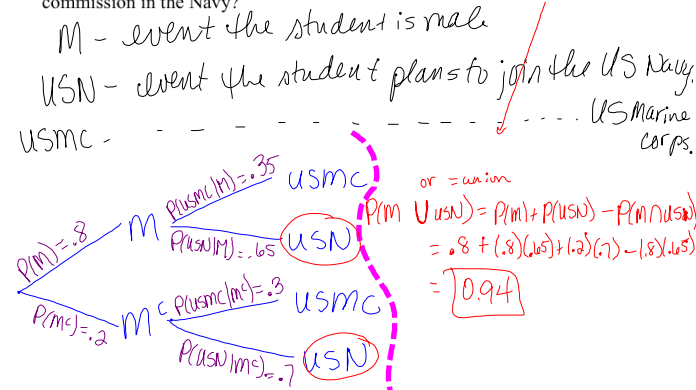 commission in the Navy?
M - event the student is male
USN - event the student plans to join the US Navy.
USMC - - - - - - - - - - - .... US Marine
corps.
P(M)=.8
M
P(USMC|M)=.35
USMC
P(USN|M)=.65
USN
P(Mᶜ)=.2
Mᶜ
P(USMC|Mᶜ)=.3
USMC
P(USN|Mᶜ)=.7
USN
or = union
P(M ∪ USN) = P(M)+P(USN) - P(M∩USN)
= .8 + (.8)(.65)+(.2)(.7) - (.8)(.65)
= 0.94